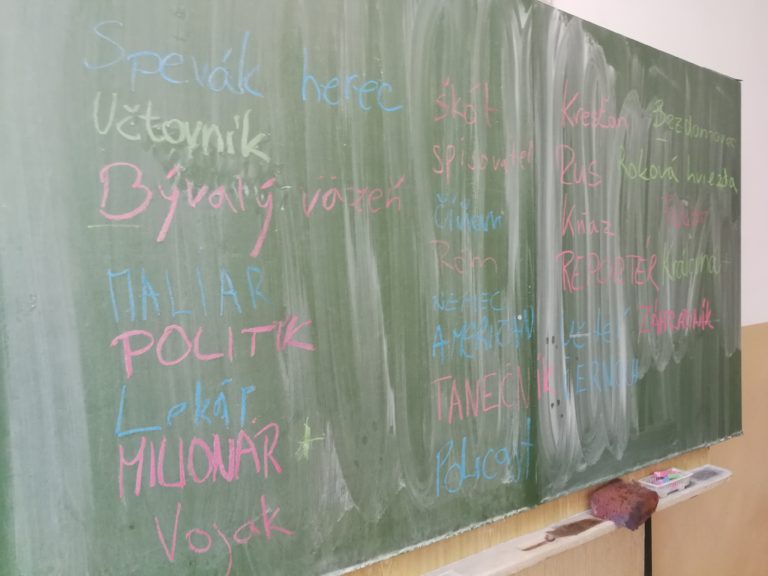 Spevák herec
Učtovník
Bývalý väzeň
MALIAR
POLITIK
Lekár
MILIONÁR +
Vojak
škót
spisovateľ
Číňan
Róm
NEMEC
AMERIČAN
TANEČNÍK
Policajt
Kresťan
Rus
Kňaz
REPORTÉR
Vedec
ČERNOCH
Bezdomovec
Roková hviezda
ZÁHRADNÍK